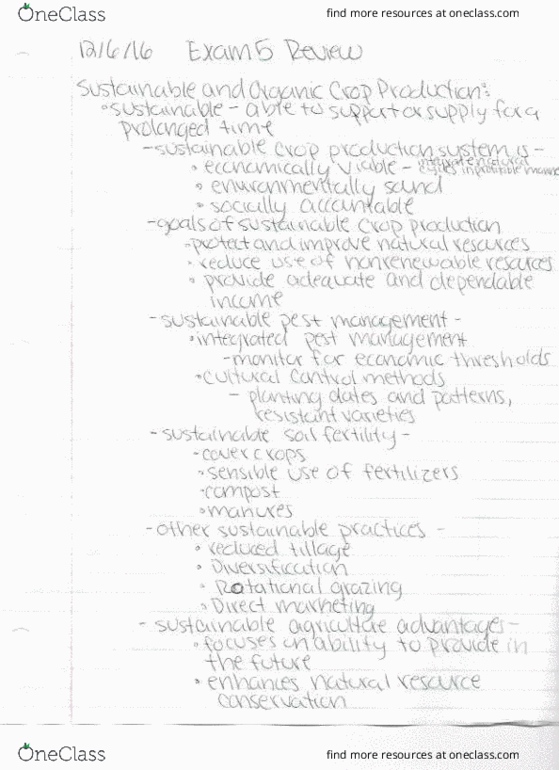 OneClass
find more resources at oneclass.com
12/6/16 Exam 5 Review
Sustainable and Organic Crop Production:
• sustainable - able to support or supply for a
prolonged time
- sustainable crop production system is -
• economically viable - integrate natural
cycles in profitable manner
• environmentally sand
• socially accountable
- goals of sustainable crop production
- protect and improve natural resources
• reduce use of nonrenewable resources
• provide adequate and dependable
income
- sustainable pest management -
• integrated pest management
- monitor for economic thresholds
• cultural control methods
- planting dates and patterns,
resistant varieties
- sustainable soil fertility -
- cover crops
• sensible use of fertilizers
• compost
• manures
- other sustainable practices -
• reduced tillage
• Diversification
• Rotational grazing
• Direct marketing
- sustainable agriculture advantages -
• focuses on ability to provide in
the future
• enhances natural resource
conservation
OneClass
find more resources at oneclass.com